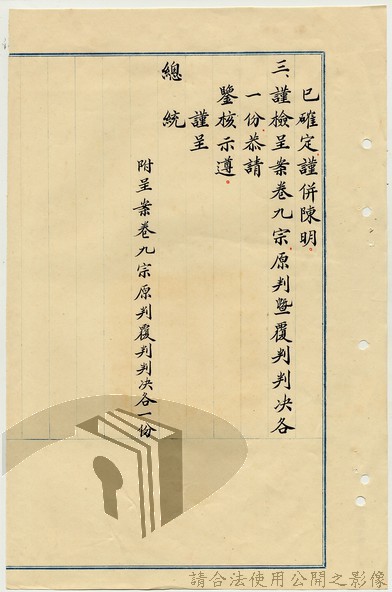 已確定謹併陳明
三、謹檢呈案卷九宗原判暨覆判判決各
一份恭請
鑒核示遵
謹呈
總統
附呈案卷九宗原判覆判判決各一份
請合法使用公開之影像